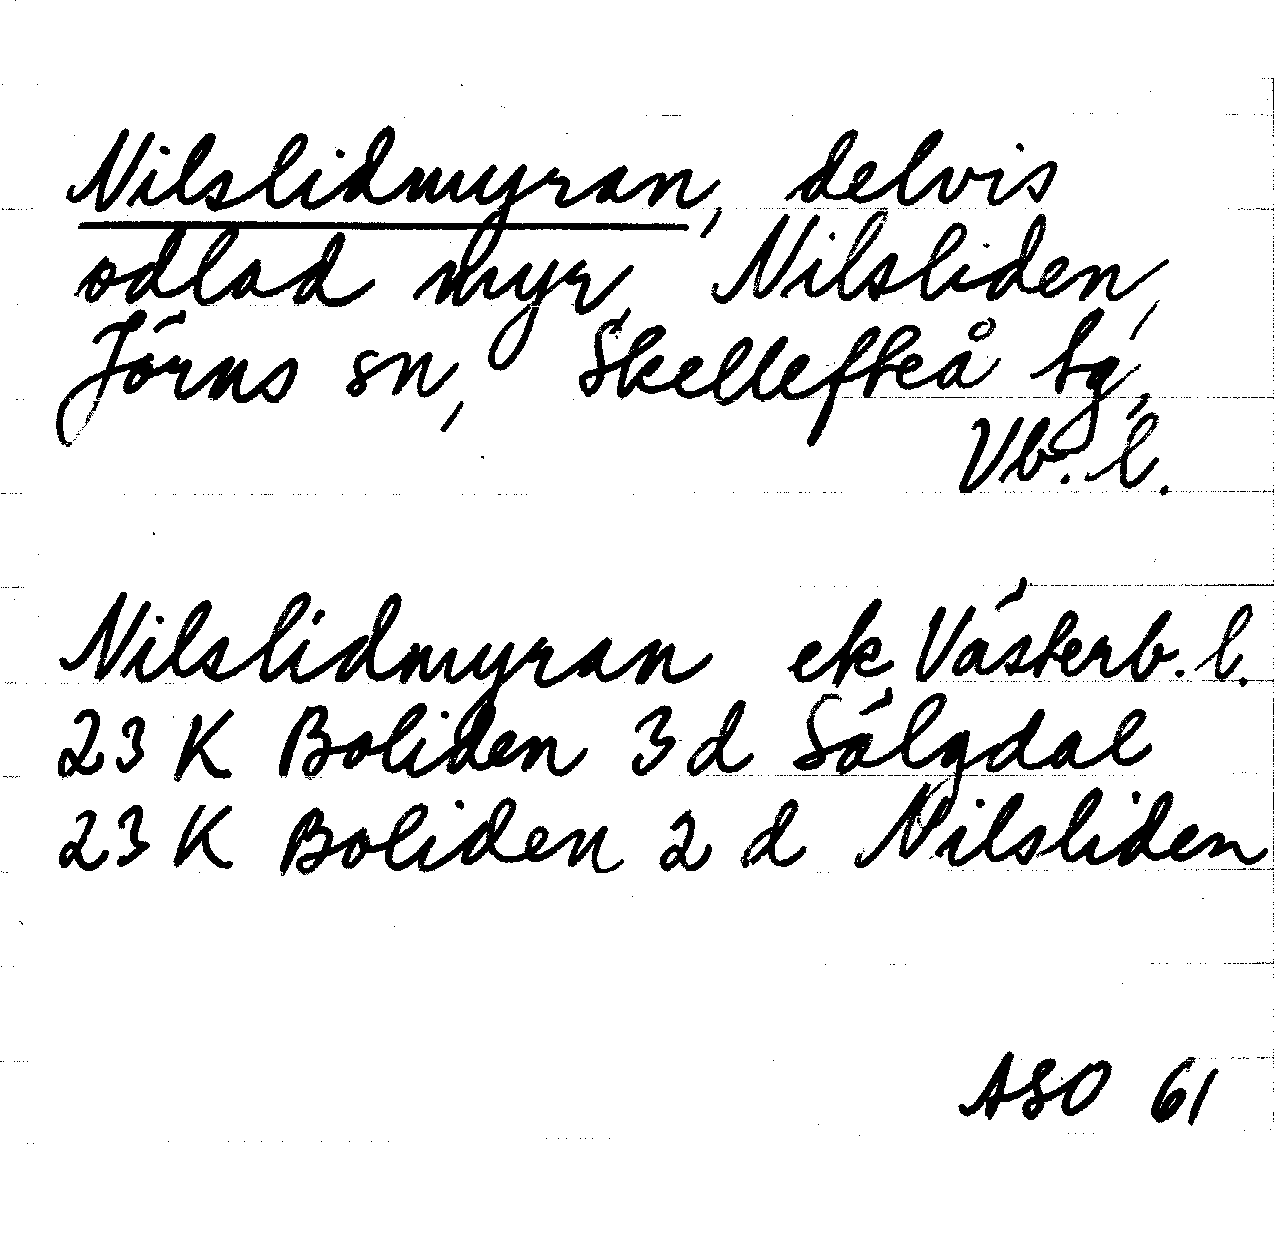 Nilslidmyran, delvis
odlad myr, Nilsliden,
Jörns sn, Skellefteå tg,
Vb. l.
Nilslidmyran ek Västerb. l.
23 K Boliden 3 d Sälgdal
23 K Boliden 2 d Nilsliden
ASO 61